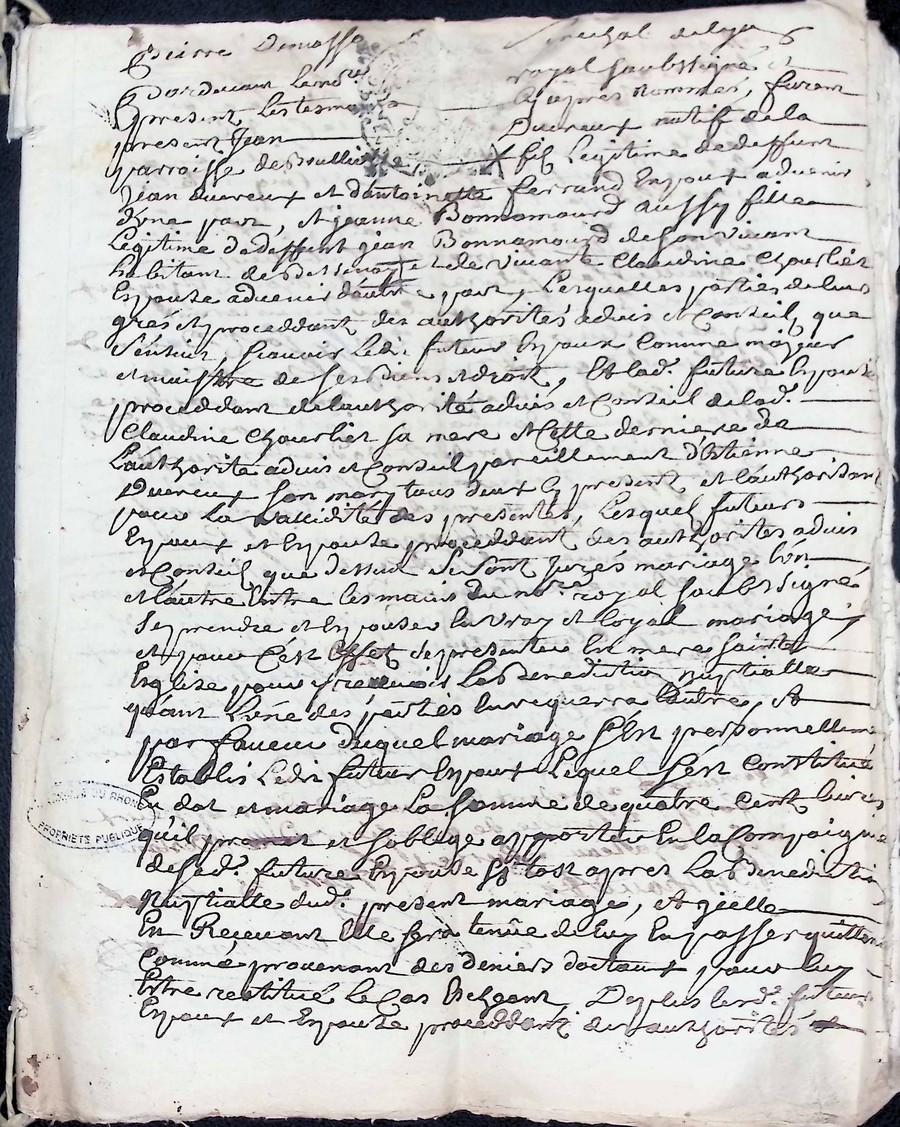 Pierre Senechal de Lyon
Pardevant le no.re royal soubssigné et
present les tesmo cy apres nommés, furent
present Jean Ducreux natif de la
parroisse de fils Legitime de deffunt
Jean ducreux et d'antoinette ferrand Espoux advenir
d'une part, et jeanne Bonnamourd aussy fille
Legitime dedeffunt jean Bonnamourd de son vivant
habitant de Bessenay et de vivante Claudine Chourlier
Espouse advenir d'autre part, Lesquelles parties de leurs
grés et proceddant des authorités advis et Conseil, que
s'ensuit, scavoir Ledit futeur Espoux Comme majeur
et maistre de ses Biens et droit, Et lad. future Espouse
proceddant de lauthorité advis et Conseil de lad.
Claudine Chourlier sa mere et Cette derniere de
L'authorité advis et Conseil pareillement d'Estienne
Ducreux son mary tous deux Cy present et l'authorisant
pour La Validité des presentes, Lesquel futeurs
Espoux et Espouse proceddant des authorités advis
et Conseil que dessus se sont Jurés mariage l'un
et Lautre Entre les mains du no.re royal soubssigné
se prendre et Espouser En vray et loyal mariage,
et pour C'est effet se presenter En mere sainte
Esglise pour y recevoir La Benediction nuptialle
quant L'une des parties En requerra Lautre, Et
par faveur duquel mariage s'Est personnellem.
Establis Ledit futeur Espoux Lequel s'est Constitué
En dot et mariage La somme de quatre Cent livres
qu'il promet et s'oblige apporter En la Compaignie
de sad. future Espouse si tost apres La Benediction
Nuptialle dud. present mariage, Et qu'elle
En Recevant Elle sera tenüe de luy En passer quittance
Comme provenant des deniers dotaux pour luy
Estre restitué Le Cas Escheant, De plus lesd. futeurs
Espoux et Espouse proceddant des authorités
DU RHONE
PROPRIETE PUBLIQUE